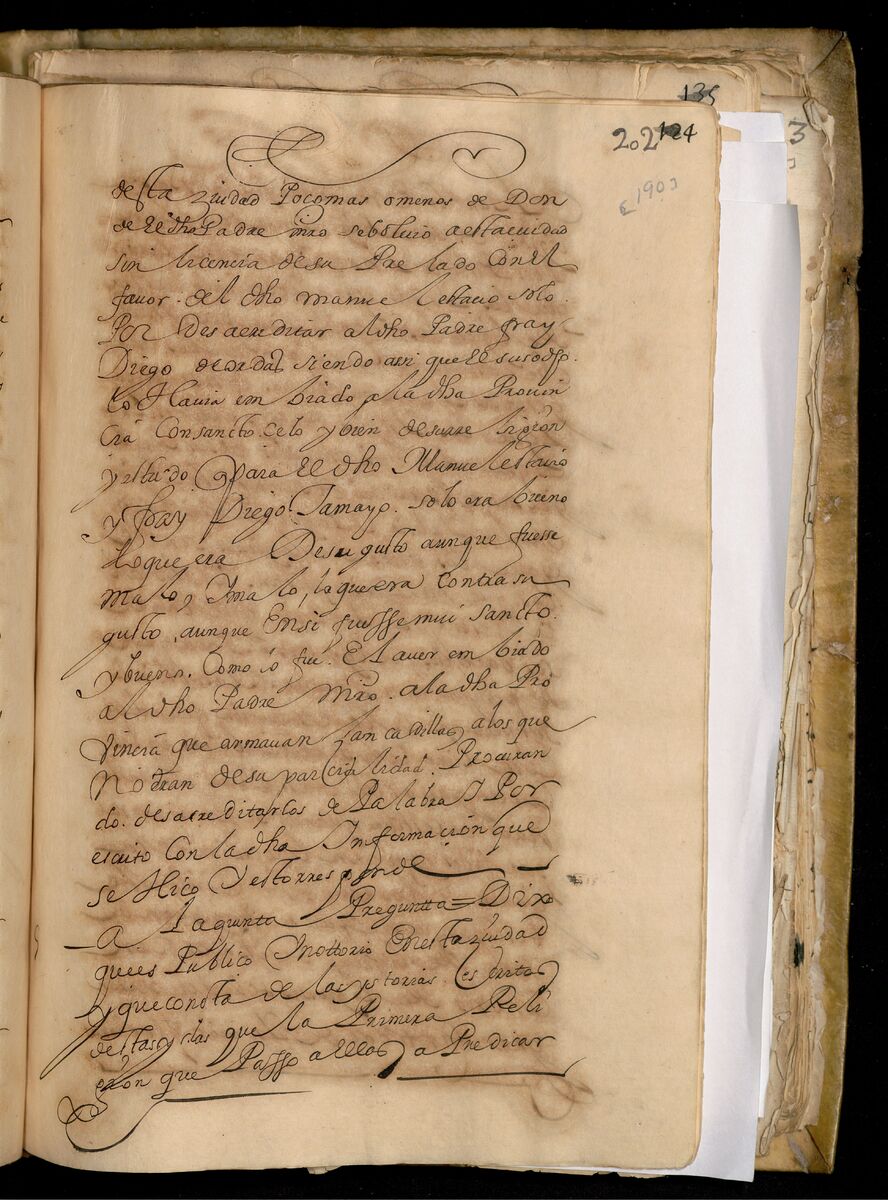 135
202 124
[190]
3
desta ziudad Pocomas omenos de Don
de El dho Padre mro sebolvio aestaciudad
sin licencia desu Prelado Con El
favor. del dho manuel estacio solo.
Por des acreditar al dho Padre fray
Diego deordas siendo assi que El susodho.
lo Havia embiado ala dha Provin
cia Consancto celo y bien desurreligion
y estado Para El dho Manuel estacio
y fray Diego Tamayo. solo era bueno
loque era Desugusto aunque fuesse
malo, Imalo, loqueera Contrasu
gusto, aunque Ensi fuesse mui sancto.
y bueno. Como lo fue. El aver embiado
al dho Padre Mro. ala dha Pro
vincia que armavan sancadillas alos que
No Eran desu parcialidad. Procuran
do. desacreditarlos de Palabra I Por
escrito Con la dha Informacion que
se Hico Yesto rresponde
A laquinta Pregunta = Dixo
quees Publico Inottorio Enesta ziudad
y queconsta de las ystorias escritas
destas yslas que la Primera Reli
gion que Passo a Ellas a Predicar